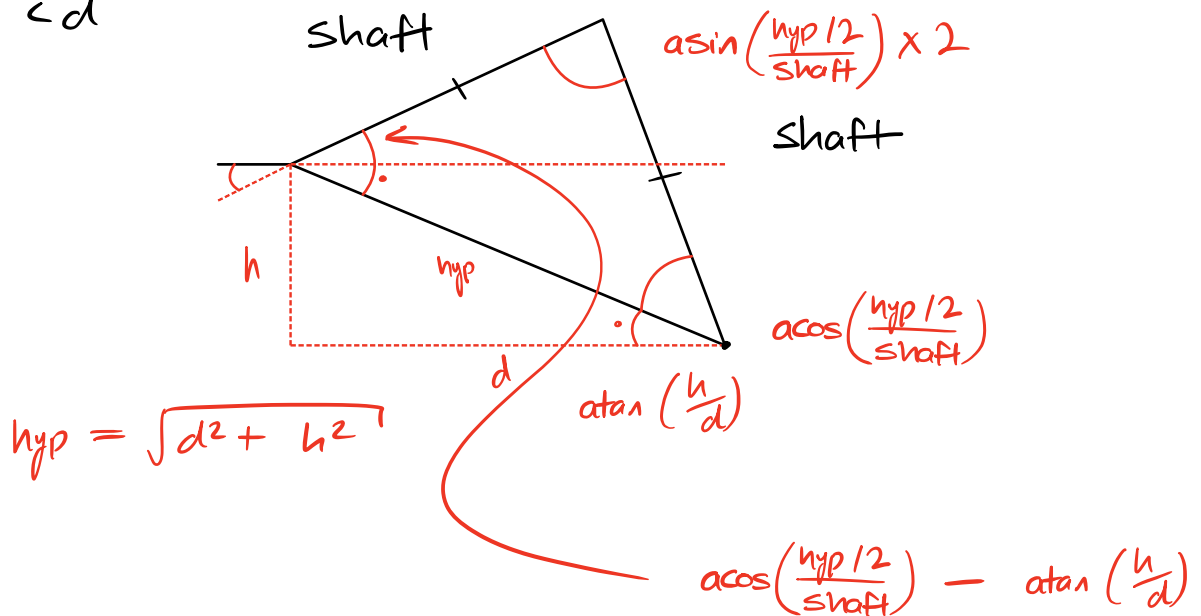 < d
shaft
asin((hyp/2)/shaft) × 2
shaft
h
hyp
acos((hyp/2)/shaft)
d
atan(h/d)
hyp = √(d² + h²)
acos((hyp/2)/shaft) − atan(h/d)